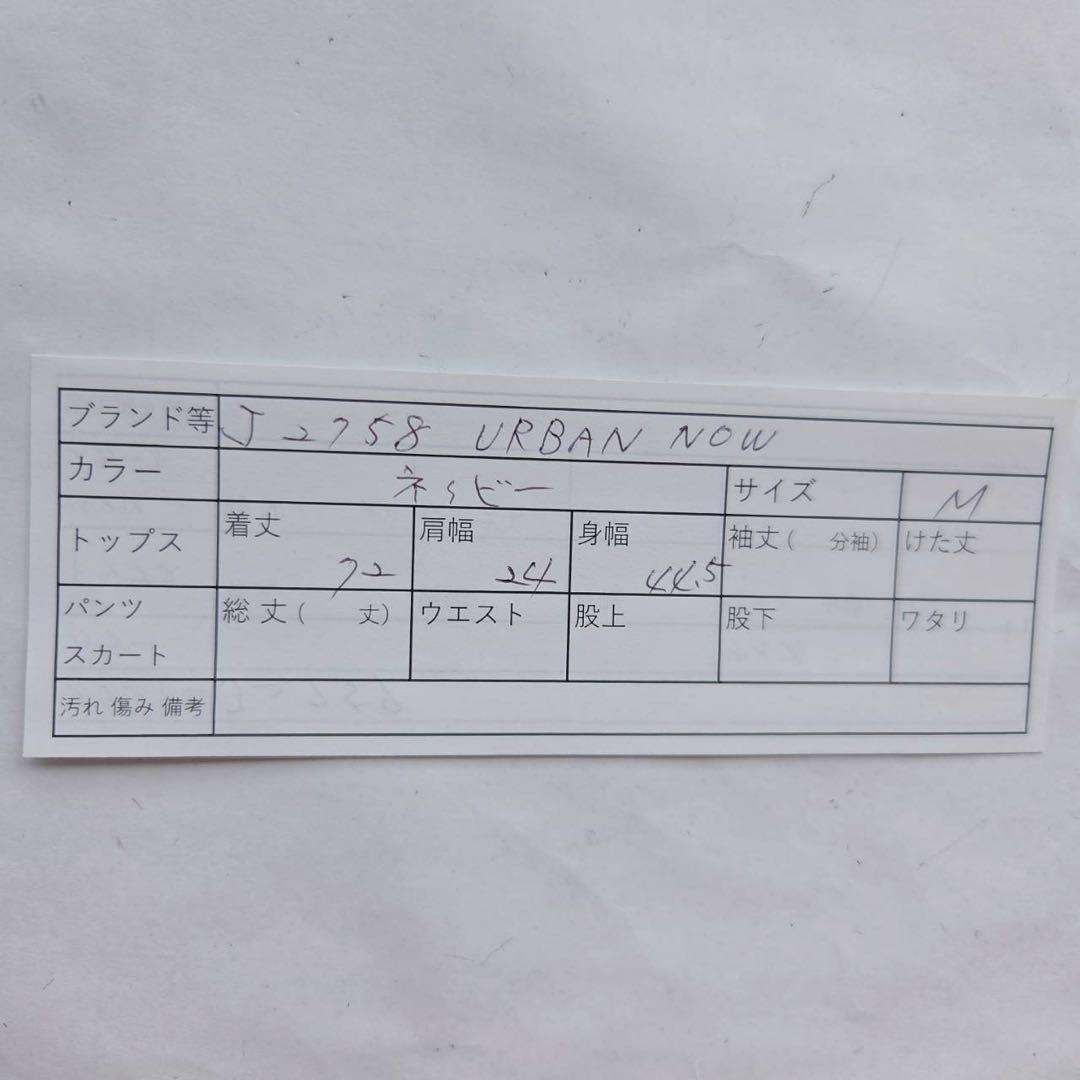 ブランド等 J2758 URBAN NOW
カラー ネイビー サイズ M
トップス 着丈 72 肩幅 24 身幅 44.5 袖丈( 分袖) けた丈
パンツ スカート 総丈( 丈) ウエスト 股上 股下 ワタリ
汚れ 傷み 備考